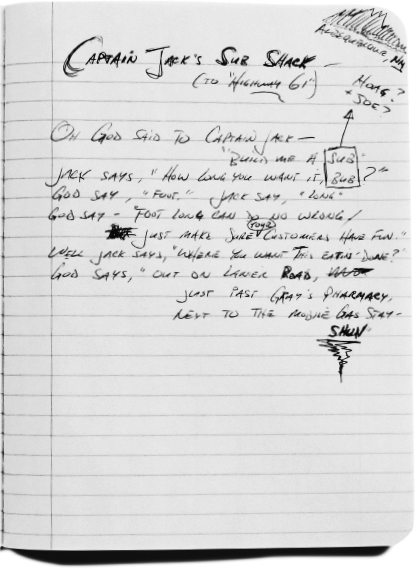 ALBUQUERQUE, NM
CAPTAIN JACK'S SUB SHACK —
(TO "HIGHWAY 61")
HOAG?
+ JOE?
OH GOD SAID TO CAPTAIN JACK —
"BUILD ME A SUB"
JACK SAYS, "HOW LONG YOU WANT IT, BUB?"
GOD SAY, "FOOT." JACK SAY, "LONG"
GOD SAY - "FOOT LONG CAN DO NO WRONG!
JUST MAKE SURE YOUR CUSTOMERS HAVE FUN."
WELL JACK SAYS, "WHERE YOU WANT THIS EATIN' DONE?"
GOD SAYS, "OUT ON LANER ROAD,
JUST PAST GRAY'S PHARMACY,
NEXT TO THE MOBILE GAS STAY-
SHUN"